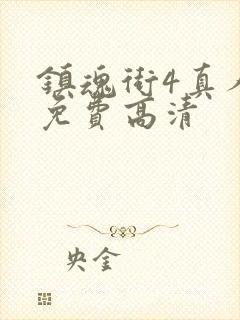 鎮魂街4真人
免費高清
央金